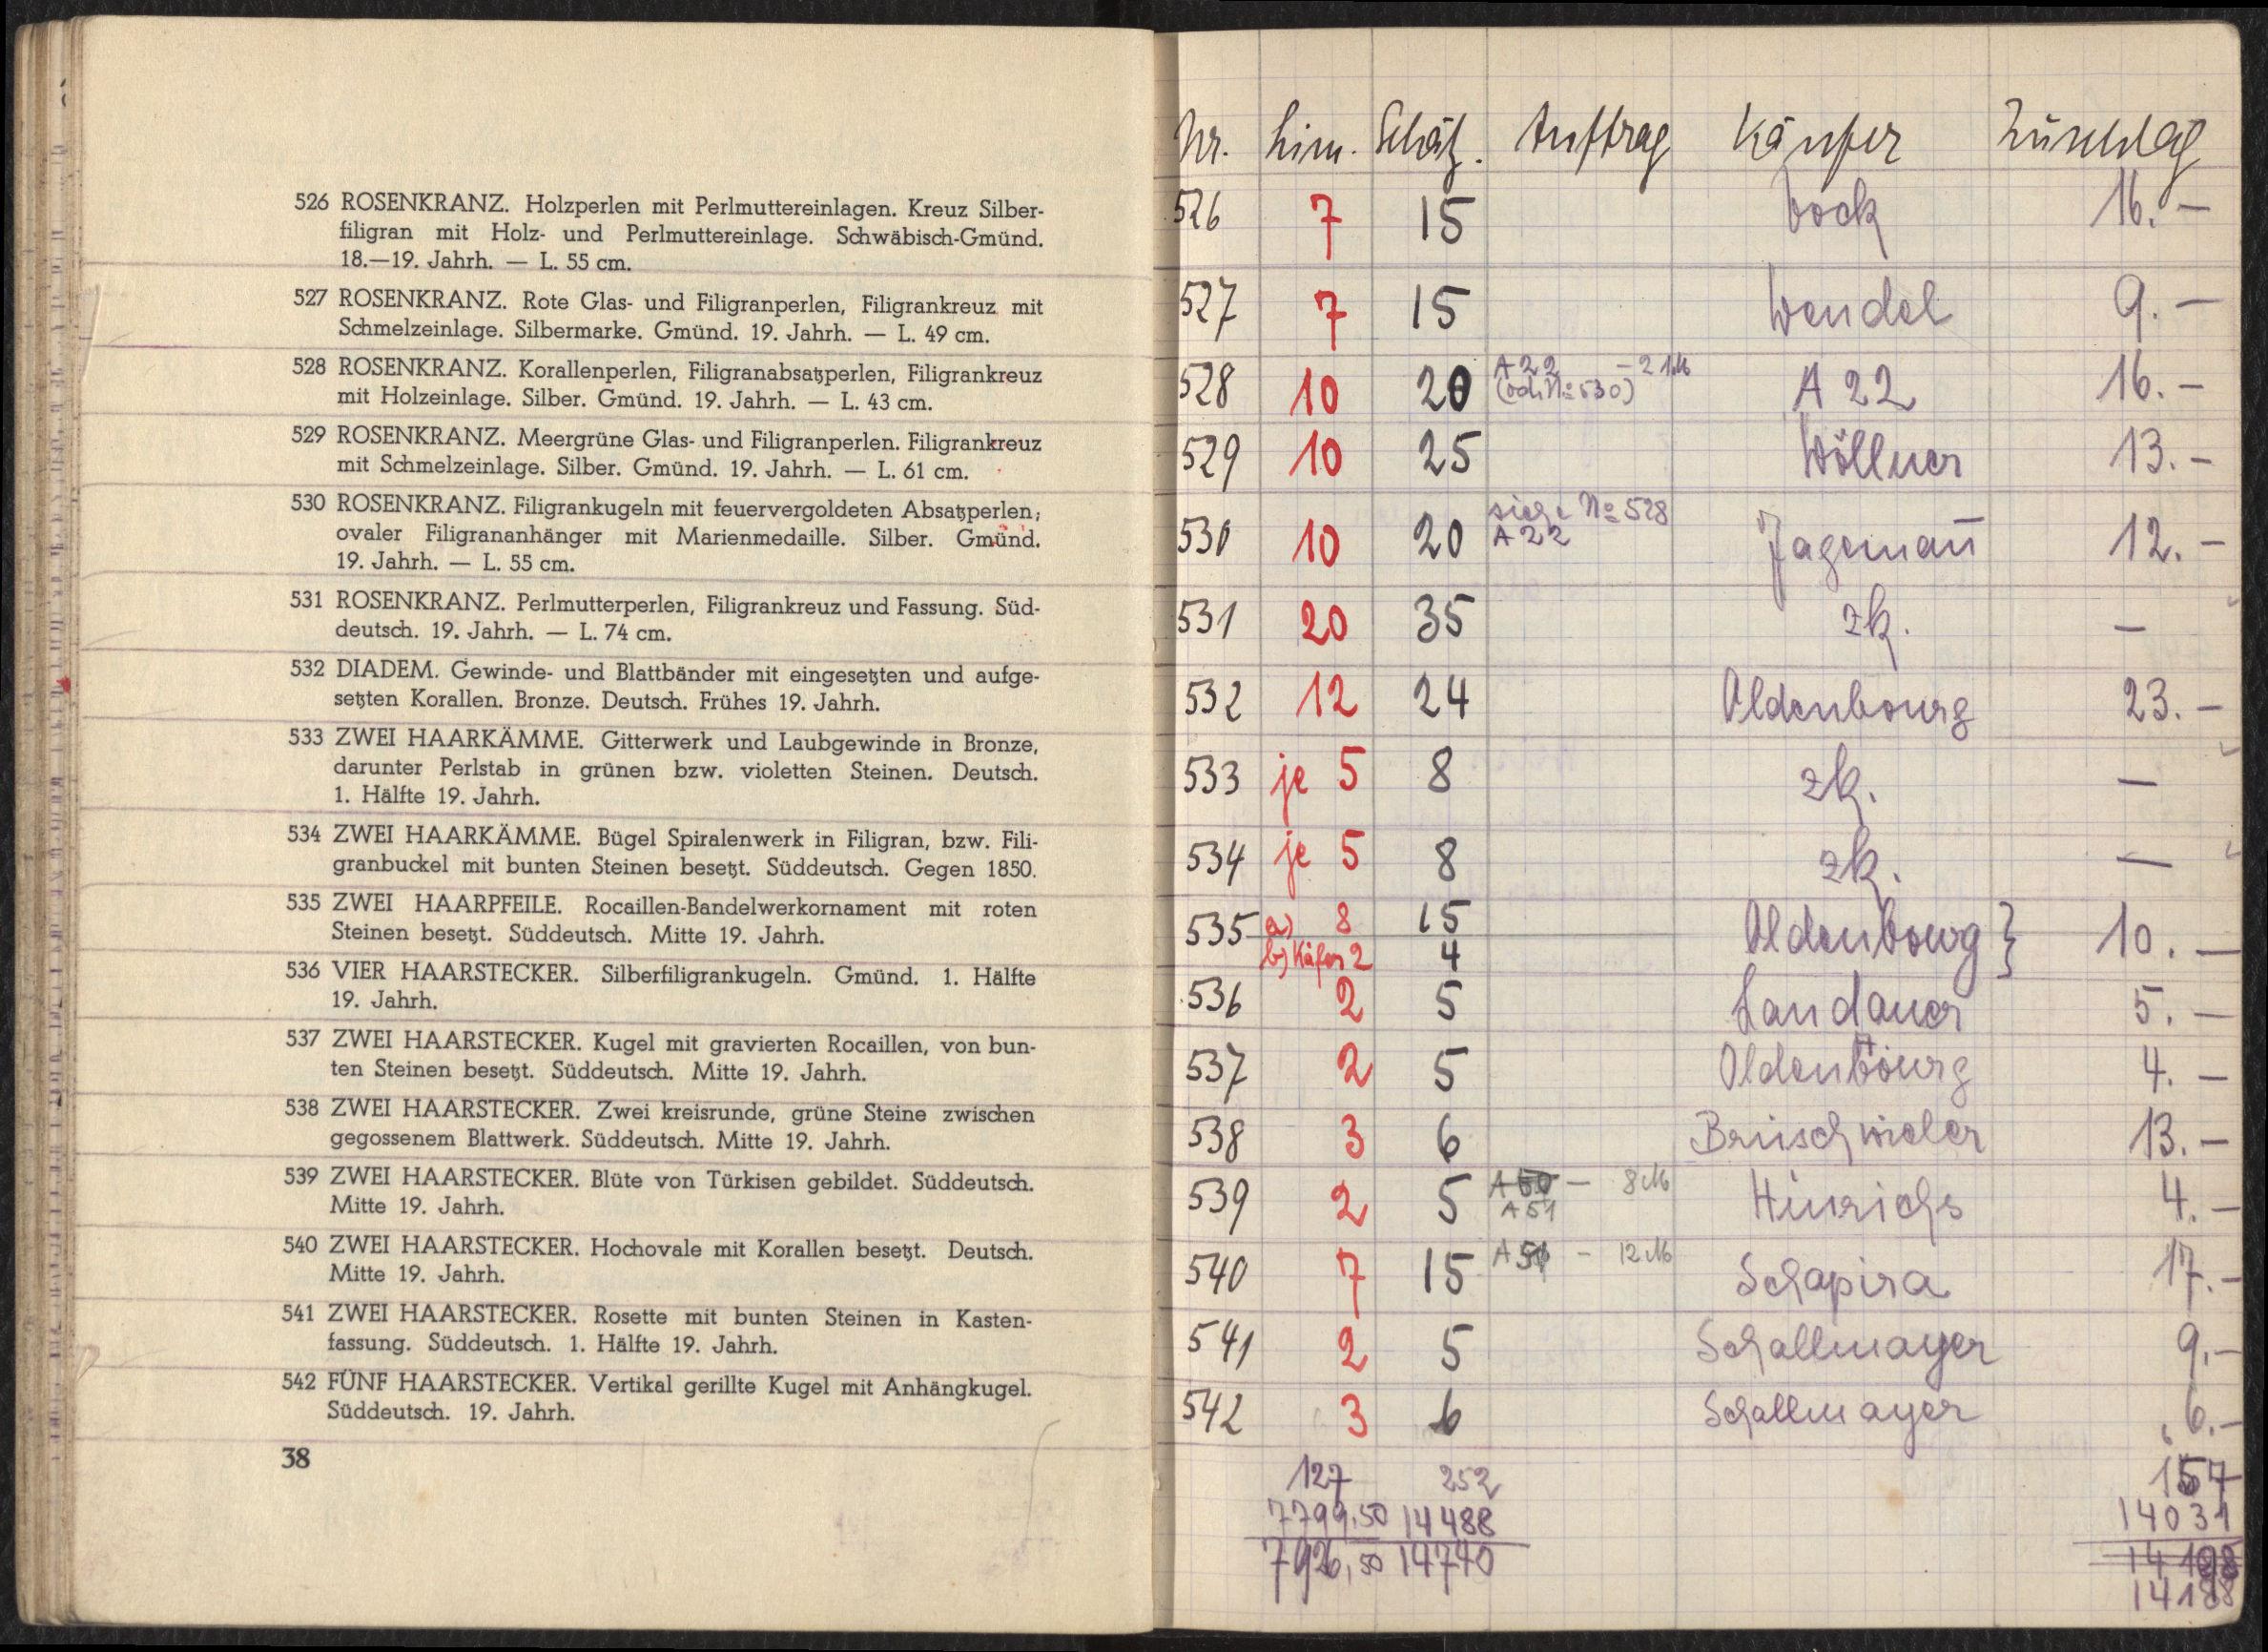 526 ROSENKRANZ. Holzperlen mit Perlmuttereinlagen. Kreuz Silber-
filigran mit Holz- und Perlmuttereinlage. Schwäbisch-Gmünd.
18.—19. Jahrh. — L. 55 cm.
527 ROSENKRANZ. Rote Glas- und Filigranperlen, Filigrankreuz mit
Schmelzeinlage. Silbermarke. Gmünd. 19. Jahrh. — L. 49 cm.
528 ROSENKRANZ. Korallenperlen, Filigranabsatzperlen, Filigrankreuz
mit Holzeinlage. Silber. Gmünd. 19. Jahrh. — L. 43 cm.
529 ROSENKRANZ. Meergrüne Glas- und Filigranperlen. Filigrankreuz
mit Schmelzeinlage. Silber. Gmünd. 19. Jahrh. — L. 61 cm.
530 ROSENKRANZ. Filigrankugeln mit feuervergoldeten Absatzperlen;
ovaler Filigrananhänger mit Marienmedaille. Silber. Gmünd.
19. Jahrh. — L. 55 cm.
531 ROSENKRANZ. Perlmutterperlen, Filigrankreuz und Fassung. Süd-
deutsch. 19. Jahrh. — L. 74 cm.
532 DIADEM. Gewinde- und Blattbänder mit eingesetzten und aufge-
setzten Korallen. Bronze. Deutsch. Frühes 19. Jahrh.
533 ZWEI HAARKÄMME. Gitterwerk und Laubgewinde in Bronze,
darunter Perlstab in grünen bzw. violetten Steinen. Deutsch.
1. Hälfte 19. Jahrh.
534 ZWEI HAARKÄMME. Bügel Spiralenwerk in Filigran, bzw. Fili-
granbuckel mit bunten Steinen besetzt. Süddeutsch. Gegen 1850.
535 ZWEI HAARPFEILE. Rocaillen-Bandelwerkornament mit roten
Steinen besetzt. Süddeutsch. Mitte 19. Jahrh.
536 VIER HAARSTECKER. Silberfiligrankugeln. Gmünd. 1. Hälfte
19. Jahrh.
537 ZWEI HAARSTECKER. Kugel mit gravierten Rocaillen, von bun-
ten Steinen besetzt. Süddeutsch. Mitte 19. Jahrh.
538 ZWEI HAARSTECKER. Zwei kreisrunde, grüne Steine zwischen
gegossenem Blattwerk. Süddeutsch. Mitte 19. Jahrh.
539 ZWEI HAARSTECKER. Blüte von Türkisen gebildet. Süddeutsch.
Mitte 19. Jahrh.
540 ZWEI HAARSTECKER. Hochovale mit Korallen besetzt. Deutsch.
Mitte 19. Jahrh.
541 ZWEI HAARSTECKER. Rosette mit bunten Steinen in Kasten-
fassung. Süddeutsch. 1. Hälfte 19. Jahrh.
542 FÜNF HAARSTECKER. Vertikal gerillte Kugel mit Anhängkugel.
Süddeutsch. 19. Jahrh.
38
Nr. Lim. Schätz. Auftrag Käufer Zuschlag
526 7 15 Bock 16.—
527 7 15 Wendel 9.—
528 10 20 A 22 — 21 M (od. No 530) A 22 16.—
529 10 25 Wöllner 13.—
530 10 20 siehe No 528 A 22 Jagemann 12.—
531 20 35 zk. —
532 12 24 Oldenbourg 23.—
533 je 5 8 zk. —
534 je 5 8 zk. —
535 a) 8 15 Oldenbourg } 10.—
b) Käfer 2 4
536 2 5 Landauer 5.—
537 2 5 Oldenbourg 4.—
538 3 6 Brüschwieler 13.—
539 2 5 A 50 — 8 M A 51 Hinrichs 4.—
540 7 15 A 51 — 12 M Schapira 17.—
541 2 5 Schallmayer 9.—
542 3 6 Schallmayer 6.—
127 252 157
7799,50 14488 14031
7926,50 14740 14198
14188